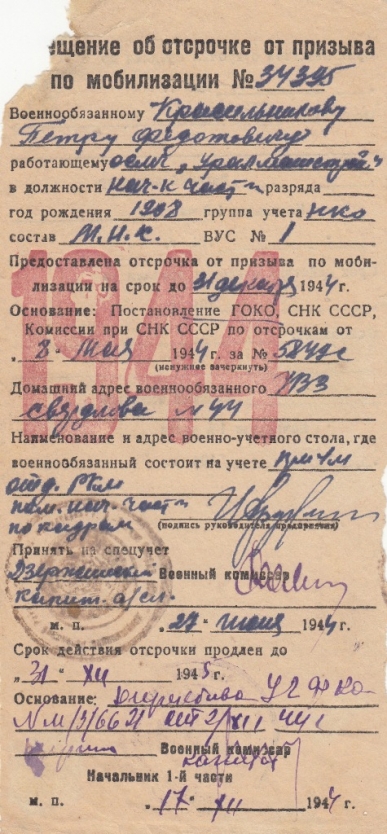 ещение об отсрочке от призыва
по мобилизации № 34395
Военнообязанному Красильникову
Петру Федотовичу
работающему осмч „Уралмашстрой"
в должности нач-к части разряда
год рождения 1908 группа учета нко
состав М.Н.С. ВУС № 1
1944
Предоставлена отсрочка от призыва по моби-
лизации на срок до 31 декабря 1944 г.
Основание: Постановление ГОКО, СНК СССР,
Комиссии при СНК СССР по отсрочкам от
„8" мая 1944 г. за №
(ненужное зачеркнуть)
Домашний адрес военнообязанного УВЗ
Свердлова № 44
Наименование и адрес военно-учетного стола, где
военнообязанный состоит на учете
отд. РКМ
пом. нач. части
по кадрам (подпись руководителя предприятия)
Принять на спецучет
Дзержинский Военный комиссар
капит. а/сл.
м. п. „27" июня 1944 г.
Срок действия отсрочки продлен до
„31" XII 1945 г.
Основание:
Военный комиссар
капитан
Начальник 1-й части
м. п. „17" XII 1944 г.